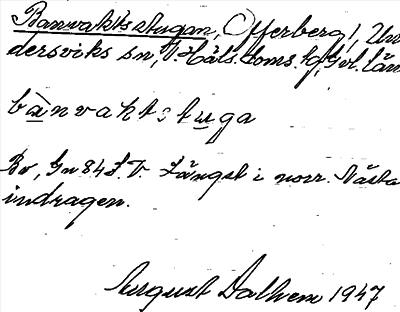 Banvaktsstugan, Offerberg 1, Un
dersviks sn, V. Häls. doms. lg, Gvl. län
bànvaktstuga
Bo, Gn 84 S. V. Längst i norr. Nästa
indragen.
August Dalhem 1947